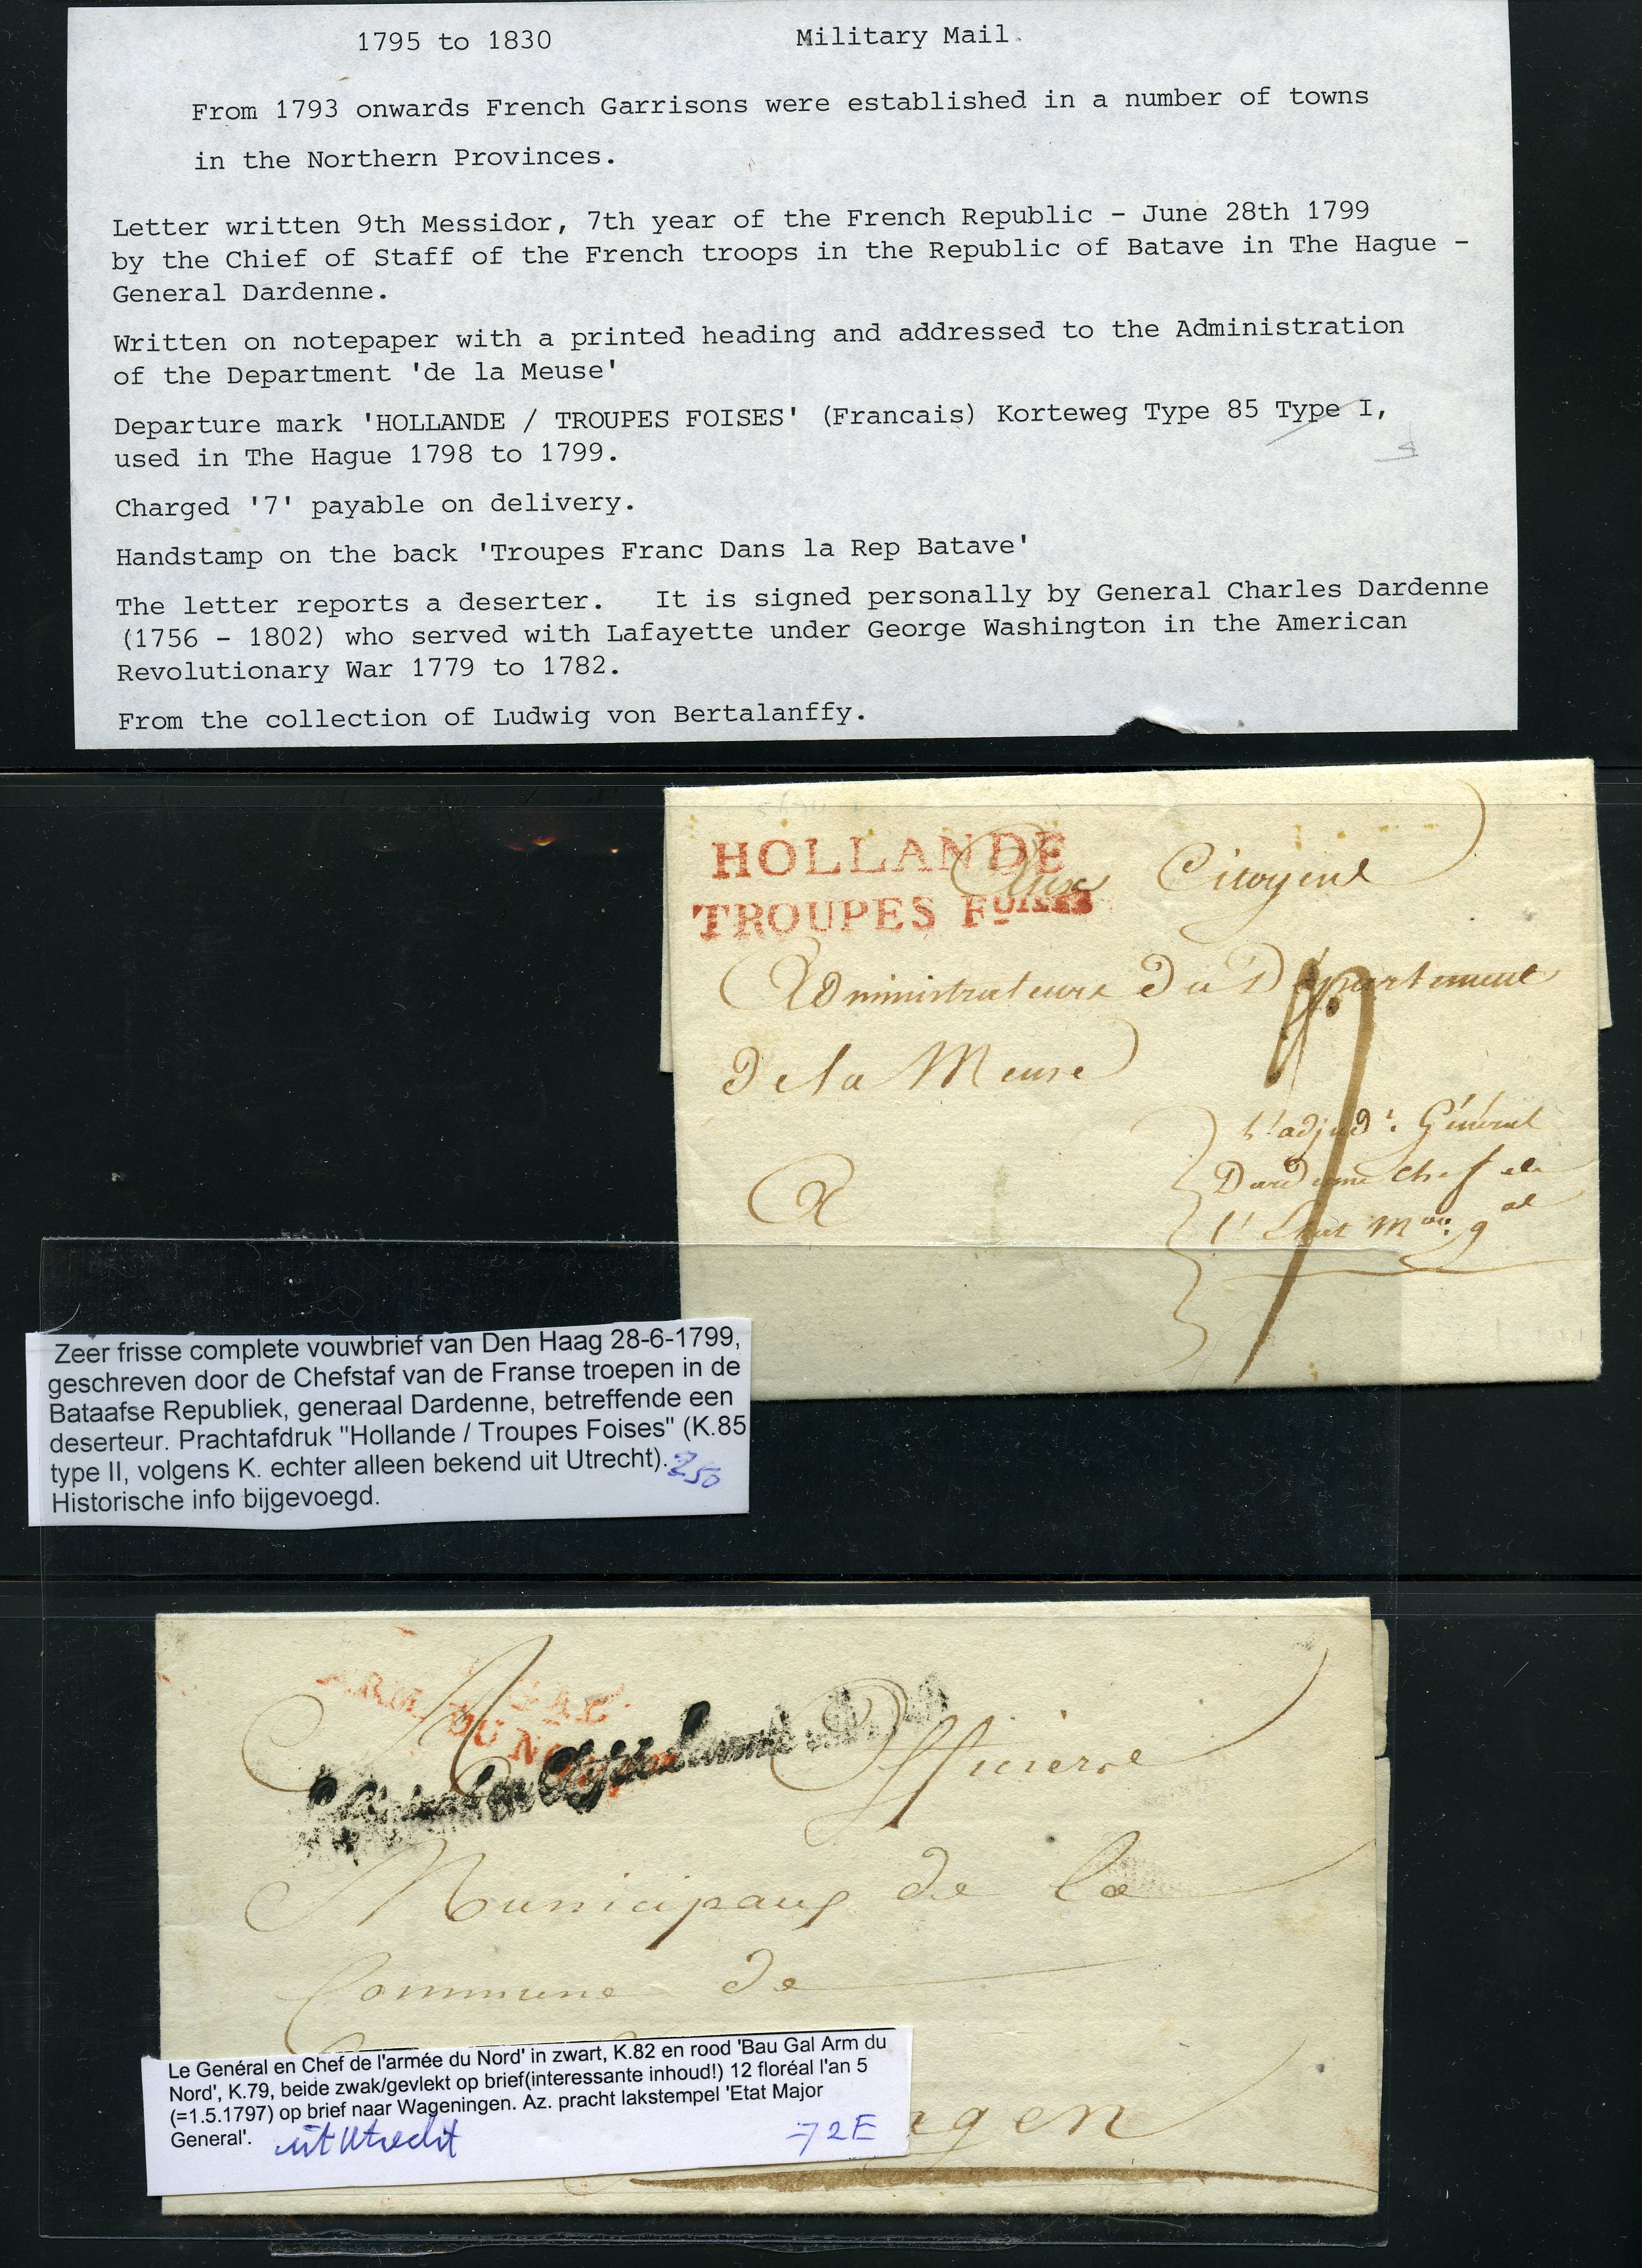 1795 to 1830 Military Mail.
From 1793 onwards French Garrisons were established in a number of towns
in the Northern Provinces.
Letter written 9th Messidor, 7th year of the French Republic - June 28th 1799
by the Chief of Staff of the French troops in the Republic of Batave in The Hague -
General Dardenne.
Written on notepaper with a printed heading and addressed to the Administration
of the Department 'de la Meuse'
Departure mark 'HOLLANDE / TROUPES FOISES' (Francais) Korteweg Type 85 Type I,
used in The Hague 1798 to 1799.
Charged '7' payable on delivery.
Handstamp on the back 'Troupes Franc Dans la Rep Batave'
The letter reports a deserter. It is signed personally by General Charles Dardenne
(1756 - 1802) who served with Lafayette under George Washington in the American
Revolutionary War 1779 to 1782.
From the collection of Ludwig von Bertalanffy.
HOLLANDE
TROUPES
Aux Citoyens
Administrateurs du Département
de la Meuse
7
A
L'adjud.t Général
Dardenne chef de
l'Etat Mor. gal
Zeer frisse complete vouwbrief van Den Haag 28-6-1799,
geschreven door de Chefstaf van de Franse troepen in de
Bataafse Republiek, generaal Dardenne, betreffende een
deserteur. Prachtafdruk "Hollande / Troupes Foises" (K.85
type II, volgens K. echter alleen bekend uit Utrecht). 250
Historische info bijgevoegd.
ARM. DU NORD
Officiers
Municipaux de la
Commune de
agen
Le Genéral en Chef de l'armée du Nord' in zwart, K.82 en rood 'Bau Gal Arm du
Nord', K.79, beide zwak/gevlekt op brief(interessante inhoud!) 12 floréal l'an 5
(=1.5.1797) op brief naar Wageningen. Az. pracht lakstempel 'Etat Major
General'. uit Utrecht 72E